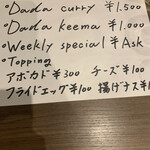 ・Dada curry ¥1.500
・Dada keema ¥1.000
・Weekly special ¥Ask
・Topping
アボカド¥300 チーズ¥100
フライドエッグ¥100 揚げナス¥1